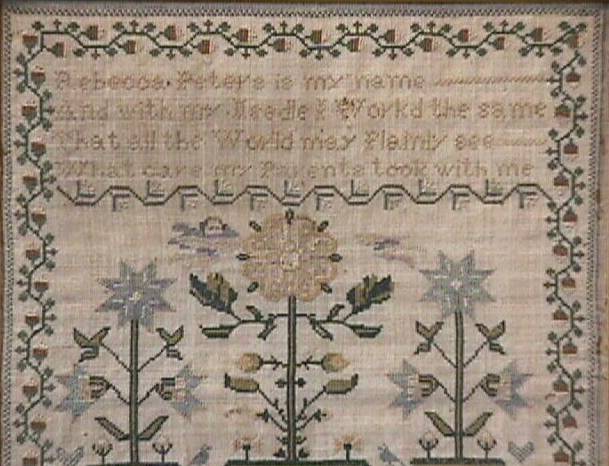 Rebecca Peters is my name
And with my Needle I Workd the same
That all the World may Plainly see
What care my Parents took with me